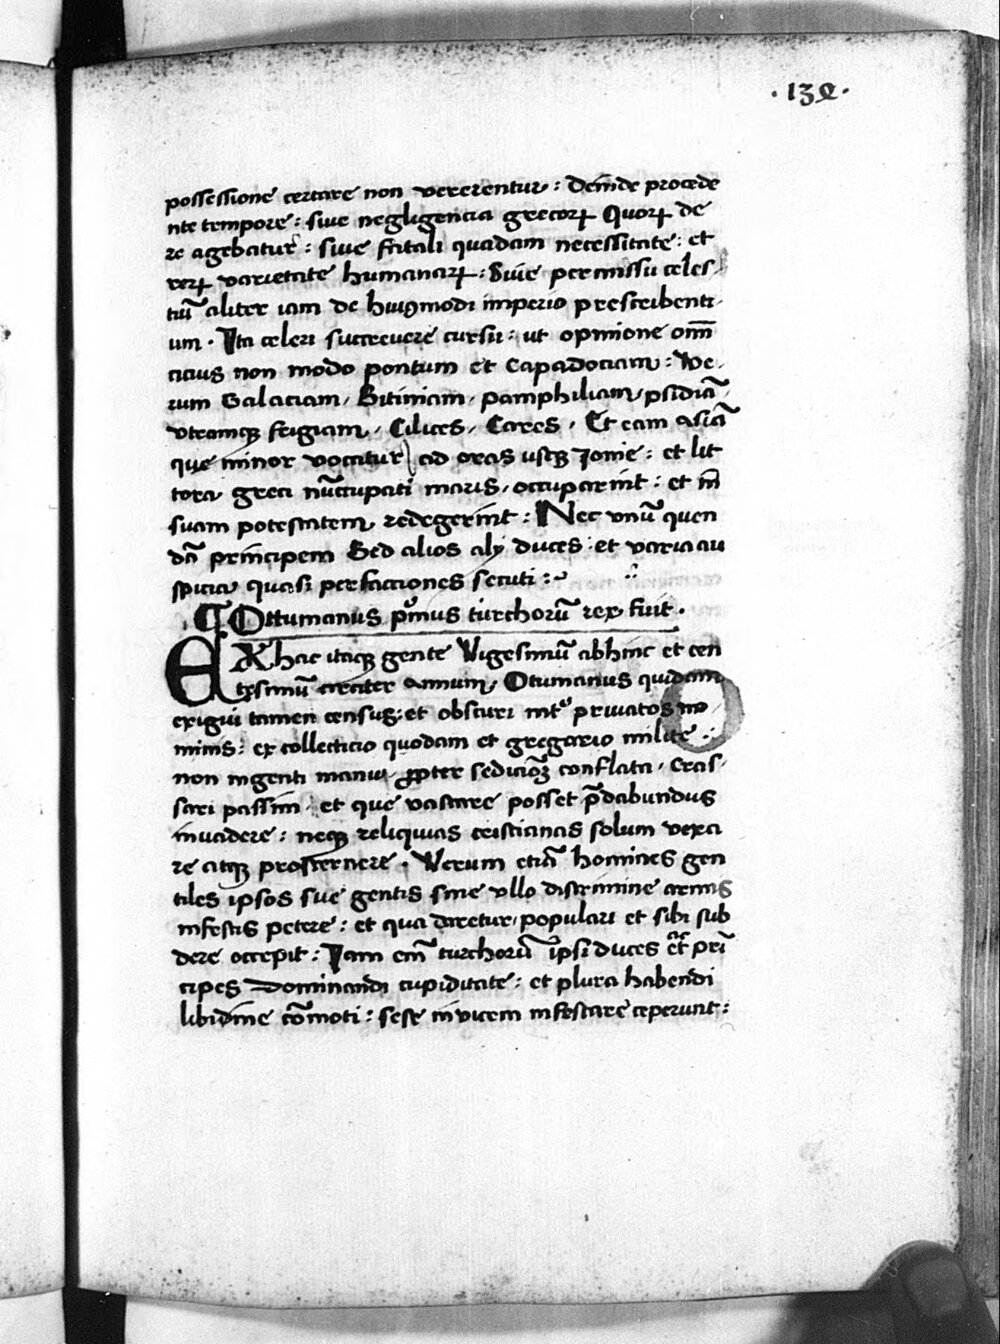 · 132 ·
possessione certare non vererentur : Deinde procede
nte tempore : siue negligencia grecorꝝ Quorꝝ de
re agebatur : siue fatali quadam necessitate : et
rerꝝ varietate humanarꝝ : Siue permissu celes-
tiũ aliter iam de huiꝰmodi imperio prescribenti-
um · Ita celeri succreuere cursu : ut opinione om̃
citius non modo pontum et Capadociam : Ve-
rum Galaciam / Bitiniam / pamphiliam / psidiã /
vtramqꝫ frigiam / Cilices / Cares / Et eam asiã
que minor vocatur / ad oras usqꝫ Ionie : et lit
tora greci nũcupati maris / occuparint : et in
suam potestatem redegerint : Nec vnũ quen
dã principem Sed alios alij duces : et varia au
spicia quasi per factiones secuti :~
¶ Ottumanus pͥmus turchorũ rex fuit ·
EX hac itaqꝫ gente Vigesimũ abhinc et cen
tesimũ circiter annum / Otumanus quidam
exigui tamen census : et obscuri int͛ priuatos no
minis : ex collecticio quodam et gregario milite :
non ingenti manu / ꝓpter sedicioꝫ conflata / Cras-
sari passim / et que vastare posset p̃dabundus
inuadere : neqꝫ reliquias cristianas solum vexa
re atqꝫ prosternere · Verum etiã homines gen
tiles ipsos sue gentis sine vllo discrimine armis
infestis petere : et qua daretur / populari et sibi sub
dere occepit : Iam em̃ turchorũ ipsi duces et prĩ
cipes Dominandi cupiditate : et plura habendi
libidine cõmoti : sese inuicem infestare ceperunt :